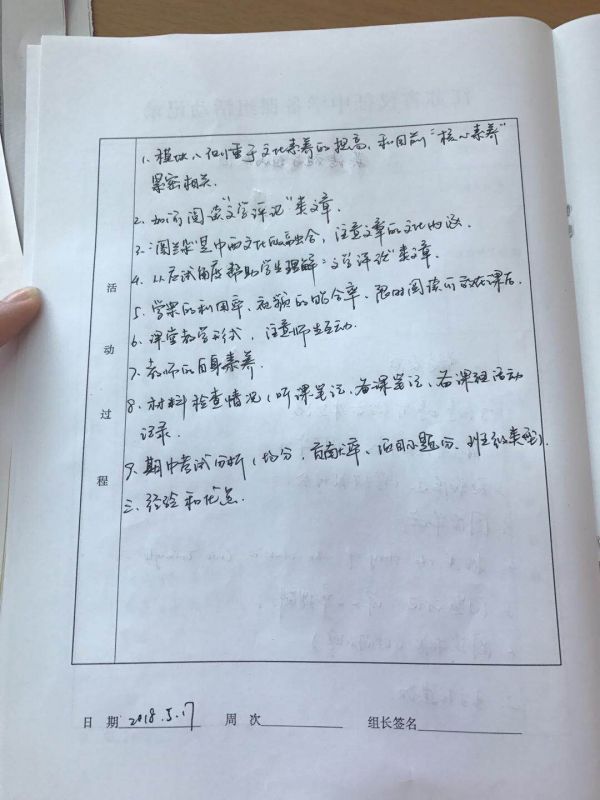 1. 模块八侧重于文化素养的提高，和目前“核心素养”
紧密相关.
2. 如何阅读“文学评论”类文章.
3. 是中西文化的融合，注意文章的文化内涵.
4. 从应试角度帮助学生理解“文学评论”类文章.
5. 学案的利用率、视频的结合率、限时阅读可放在课后.
6. 课堂教学形式，注意师生互动.
7. 教师的自身素养.
8. 材料检查情况（听课笔记、备课笔记、备课组活动
记录.
9. 期中考试分析（均分、项目小题分、班级类型）.
三. 经验和优点.
活动过程
日 期 2018.5.17 周 次 组长签名